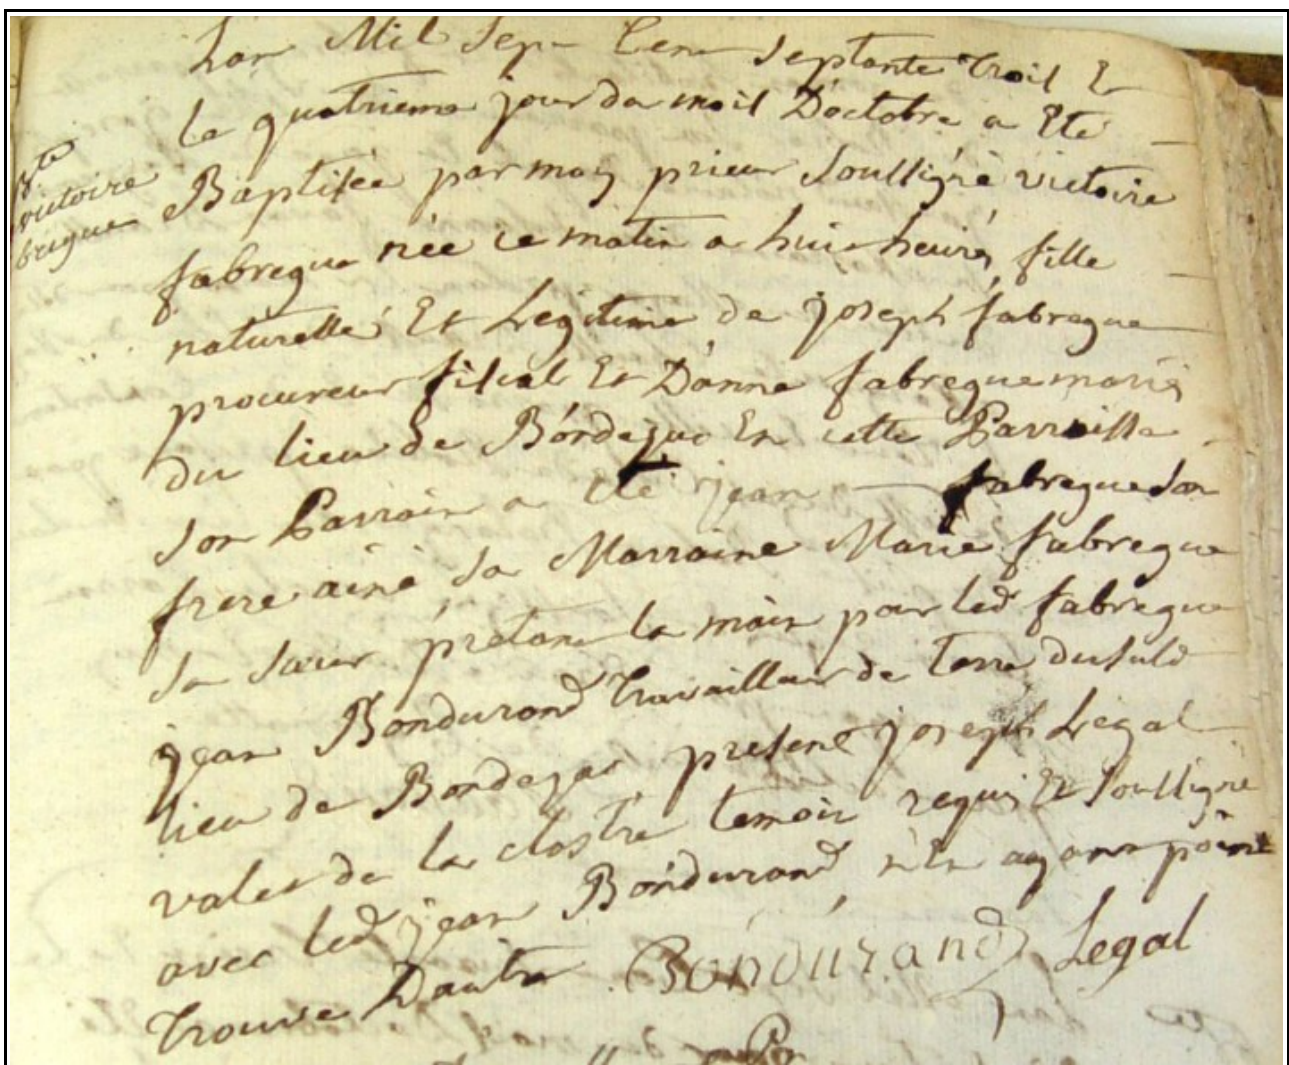 Lan Mil Sept Cent Septante trois Et
le quatrieme jour du mois D'octobre a Eté
Bte
victoire
bregue
Baptisée par moy prieur Soussigné victoire
fabregue née ce matin a huit heures fille
naturelle Et Legitime de joseph fabregue
procureur fiscal Et D'anne fabregue mariés
du lieu de Bordezac En cette Parroisse
son Parrain a été jean fabregue son
frere ainé sa Marraine Marie fabregue
sa sœur prétant la main pour led fabregue
jean Bondurand travailleur de terre dususd
lieu de Bordezac present joseph Legal
valet de la clastre temoin requis Et soussigné
avec led jean Bondurand n'En ayant point
trouvé D'autre Bondurand Legal
pr